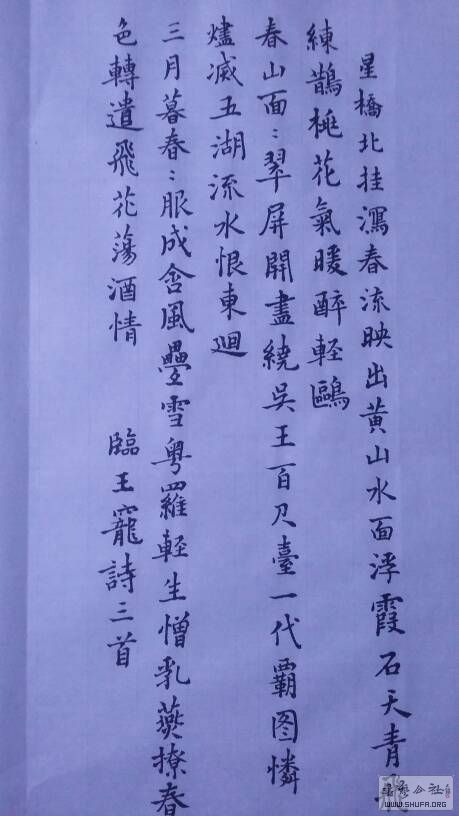 星橋北挂瀉春流映出黃山水面浮霞石天青飛
練鵲桃花氣暖醉軽鷗
春山面:翠屏開盡繞吳王百尺臺一代霸图憐
燼滅五湖流水恨東迴
三月暮春:服成含風疊雪粵羅軽生憎乳燕撩春
色轉遣飛花蕩酒情 臨王寵詩三首
WWW.SHUFA.ORG